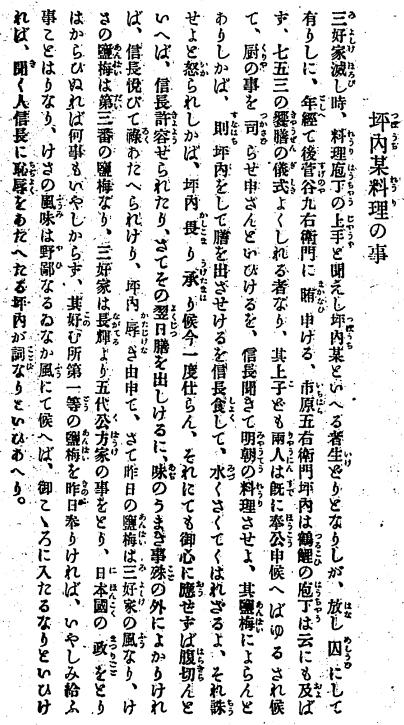 坪內某料理の事
三好家滅し時、料理庖丁の上手と聞えし坪內某といへる者生どりとなりしが、放し囚にして
有りしに、年經て後菅谷九右衞門に賄申ける、市原五右衞門坪內は鶴鯉の庖丁は云にも及ば
ず、七五三の饗膳の儀式よくしれる者なり、其上子ども兩人は旣に奉公申候へばゆるされ候
て、厨の事を司らせ申さんといひけるを、信長聞きて明朝の料理させよ、其鹽梅によらんと
ありしかば、則坪內をして膳を出ざせけるを信長食して、水くさくてくはれざるよ、それ誅
せよと怒られしかば、坪內畏り承り候今一度仕らん、それにても御心に應せずば腹切んと
いへば、信長許容せられたり、さてその翌日膳を出しけるに、味のうまき事殊の外によかりけれ
ば、信長悅びて祿あたへられけり、坪內辱き由申て、さて昨日の鹽梅は三好家の風なり、け
さの鹽梅は第三番の鹽梅なり、三好家は長輝より五代公方家の事をとり、日本國の政をとり
はからひぬれば何事もいやしからず、其好む所第一等の鹽梅を昨日奉りければ、いやしみ給ふ
事ことはりなり、けさの風味は野鄙なるゐなか風にて候へば、御こゝろに入たるなりといひけ
れば、聞く人信長に恥辱をあたへたる坪內が詞なりといひあへり。